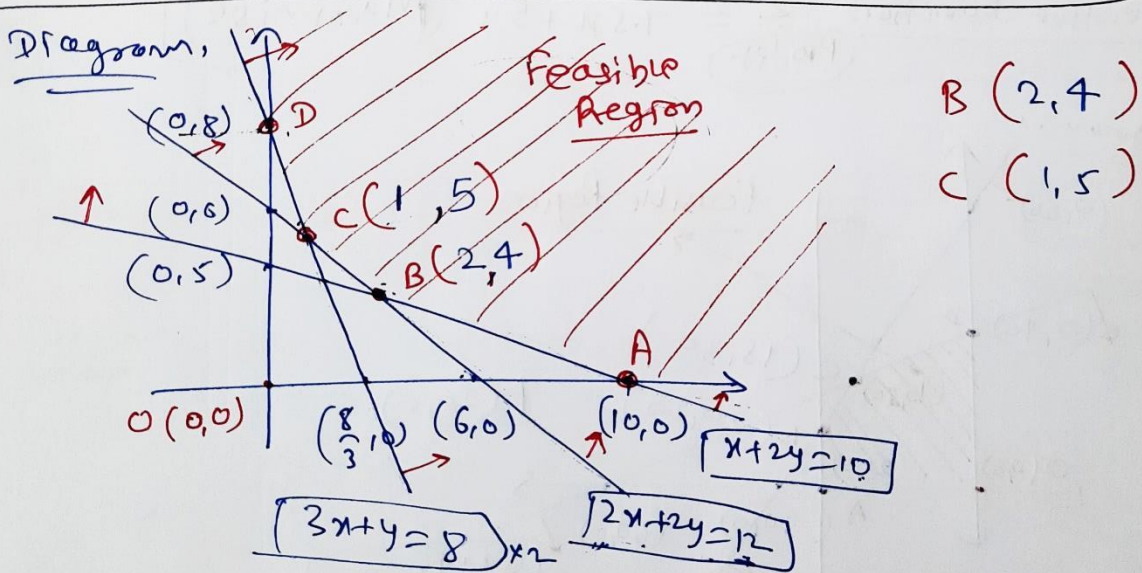 Diagram,
Feasible
Region
B (2,4)
C (1,5)
(0,8) D
C(1,5)
(0,6)
B(2,4)
(0,5)
A
O(0,0)
(8/3,0) (6,0) (10,0)
x+2y=10
3x+y=8 x2
2x+2y=12